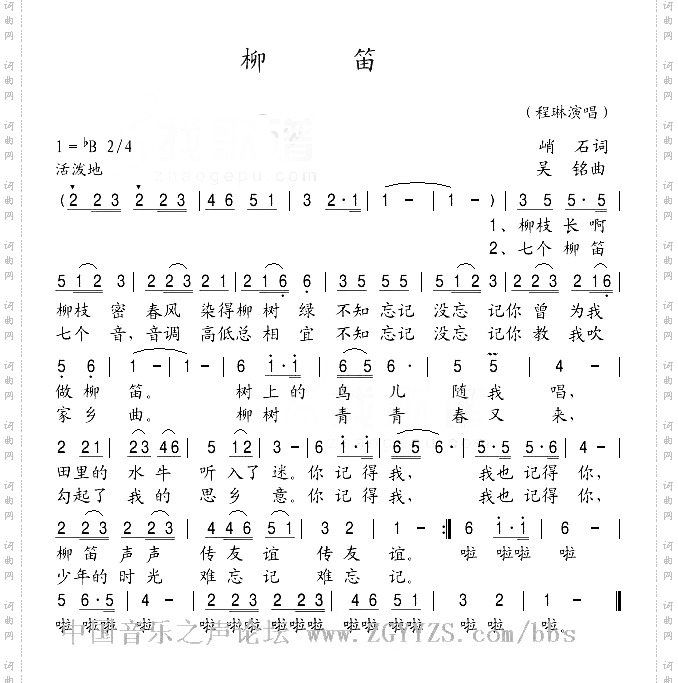 柳 笛
（程琳演唱）
1 = ♭B 2/4 峭 石词
活泼地 吴 铭曲
( 2 2 3 2 2 3 | 4 6 5 1 | 3 2·1 | 1 - | 1 - ) | 3 5 5·5 |
1、柳枝 长 啊
2、七个 柳 笛
5 1 2 3 | 2 2 3 2 1 | 2 1 6 6 | 3 5 5 5 | 5 1 2 3 | 2 2 1 6 |
柳枝 密 春风 染得 柳 树 绿 不知 忘记 没忘 记你 曾 为我
七个 音，音调 高低总 相 宜 不知 忘记 没忘 记你 教 我吹
5 6 | 1 - | 1 - | 6 1·1 | 6 5 6· | 5 5 | 4 - |
做 柳 笛。 树 上 的 鸟 儿 随 我 唱，
家 乡 曲。 柳 树 青 青 春 又 来，
2 2 1 | 2 3 4 6 | 5 1 2 | 3 - | 6 1·1 | 6 5 6· | 5·5 5·6 | 4 - |
田 里的 水 牛 听 入了 迷。你 记 得 我， 我也 记得 你，
勾 起了 我 的 思 乡 意。你 记 得 我， 我也 记得 你，
2 2 3 2 2 3 | 4 4 6 5 1 | 3 2 | 1 - :| 6 1·1 | 6 - |
柳 笛 声 声 传 友 谊 传 友 谊。 啦 啦啦 啦
少年 的 时 光 难忘 记 难 忘 记。
5 6·5 | 4 - | 2 2 3 2 2 3 | 4 4 6 5 1 | 3 2 | 1 - |
中国音乐之声论坛 www.ZGYYZS.com/bbs
zhaogepu.com
词曲网